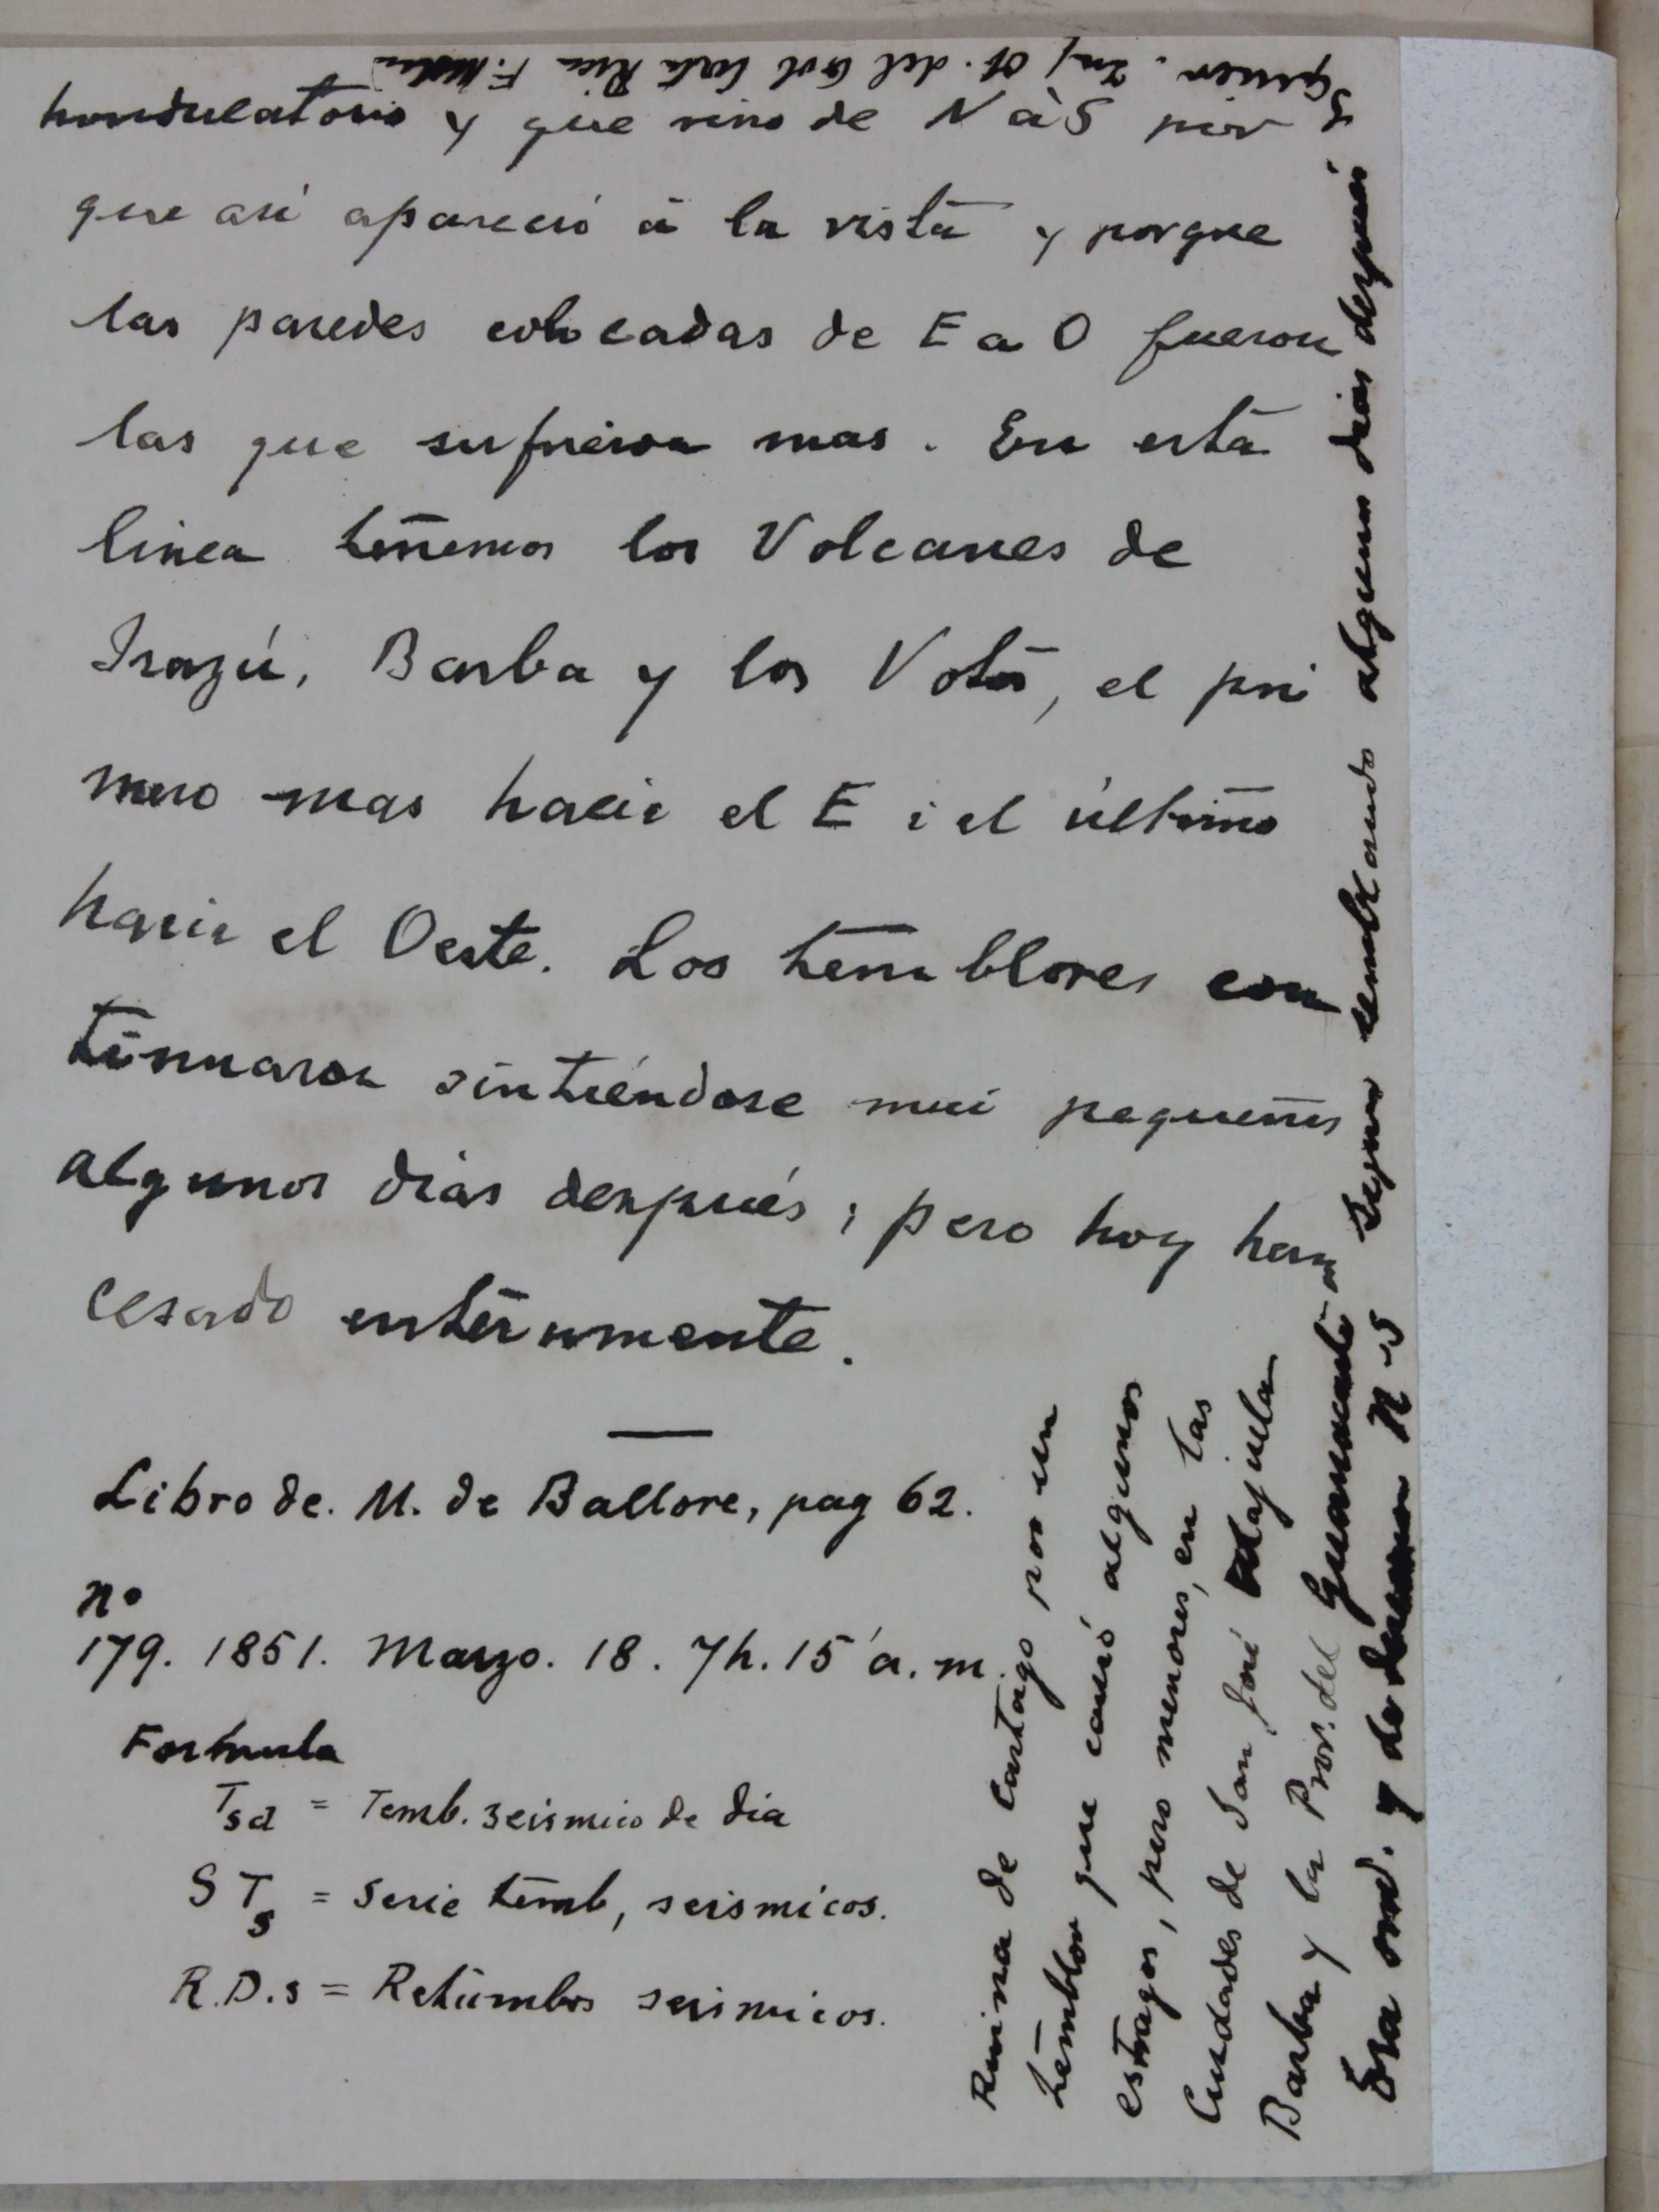 hondulatorio y que vino de N à S por
que así apareció á la vista y porque
las paredes colocadas de E a O fueron
las que sufrieron mas. En esta
linea tenemos los Volcanes de
Irazú, Barba y los Votos, el pri
mero mas hacia el E i el último
hacia el Oeste. Los temblores con
tinuaron sintiéndose mui pequeños
algunos dias después; pero hoy han
cesado enteramente.
Libro de. M. de Ballore, pag 62.
No
179. 1851. Marzo. 18. 7h. 15' a. m.
Formula
Tsd = Temb. seismico de dia
S Ts = Serie temb, seismicos.
R.D.s = Retumbos seismicos.
Ruina de Cartago por un
temblor que causó algunos
estragos, pero menores, en las
Ciudades de San José Alajuela
Barba y la Prov. del Guanacaste
Era ond. y de N-S
Siguió temblando algunos dias después
Inf of. del Gob Costa Rica F.